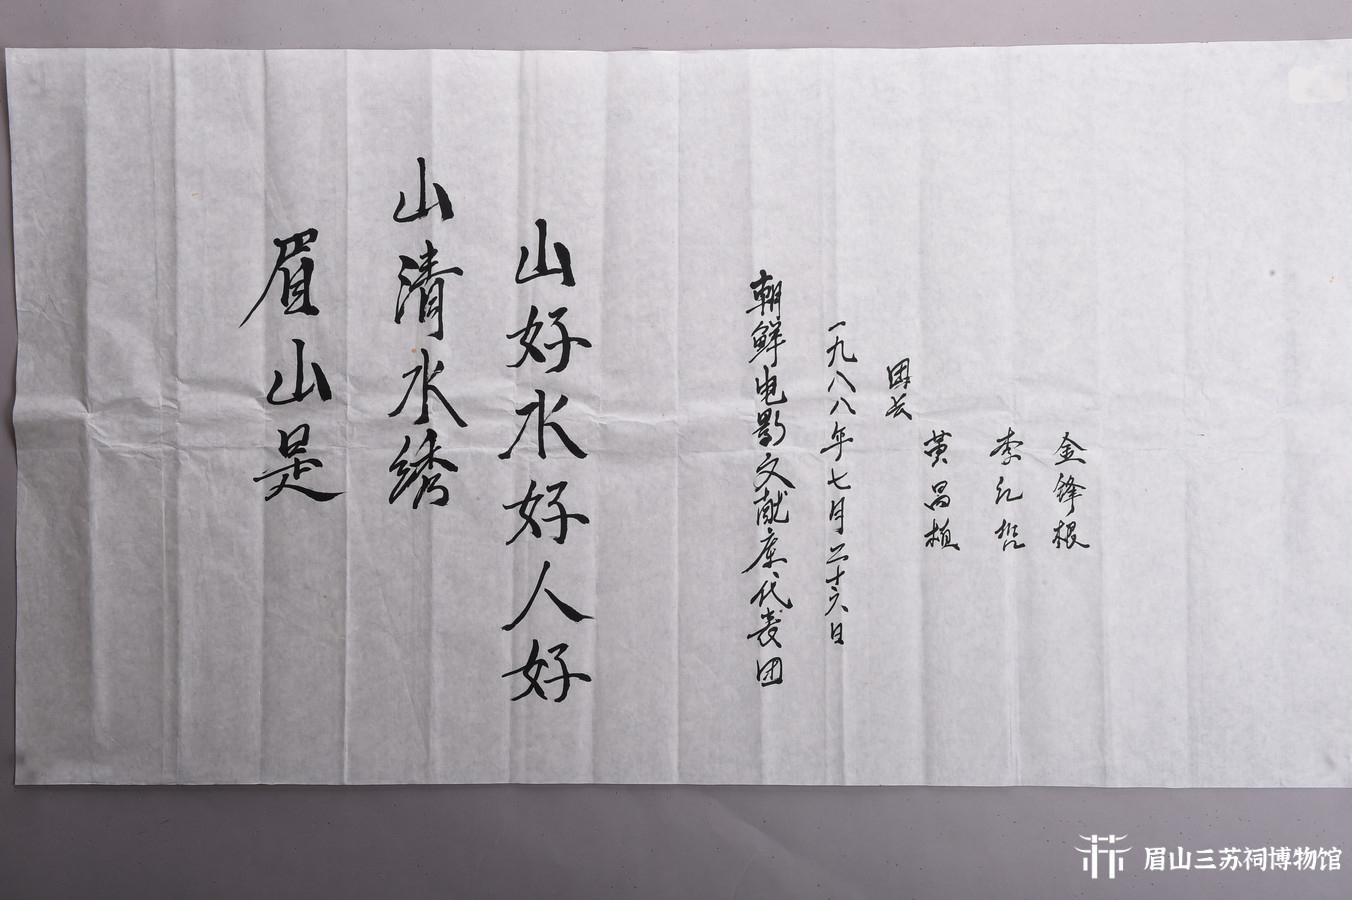 眉山是
山清水绣
山好水好人好
朝鲜电影文献库代表团
一九八八年七月二十六日
团长
黄昌植
李红哲
金锋根
眉山三苏祠博物馆